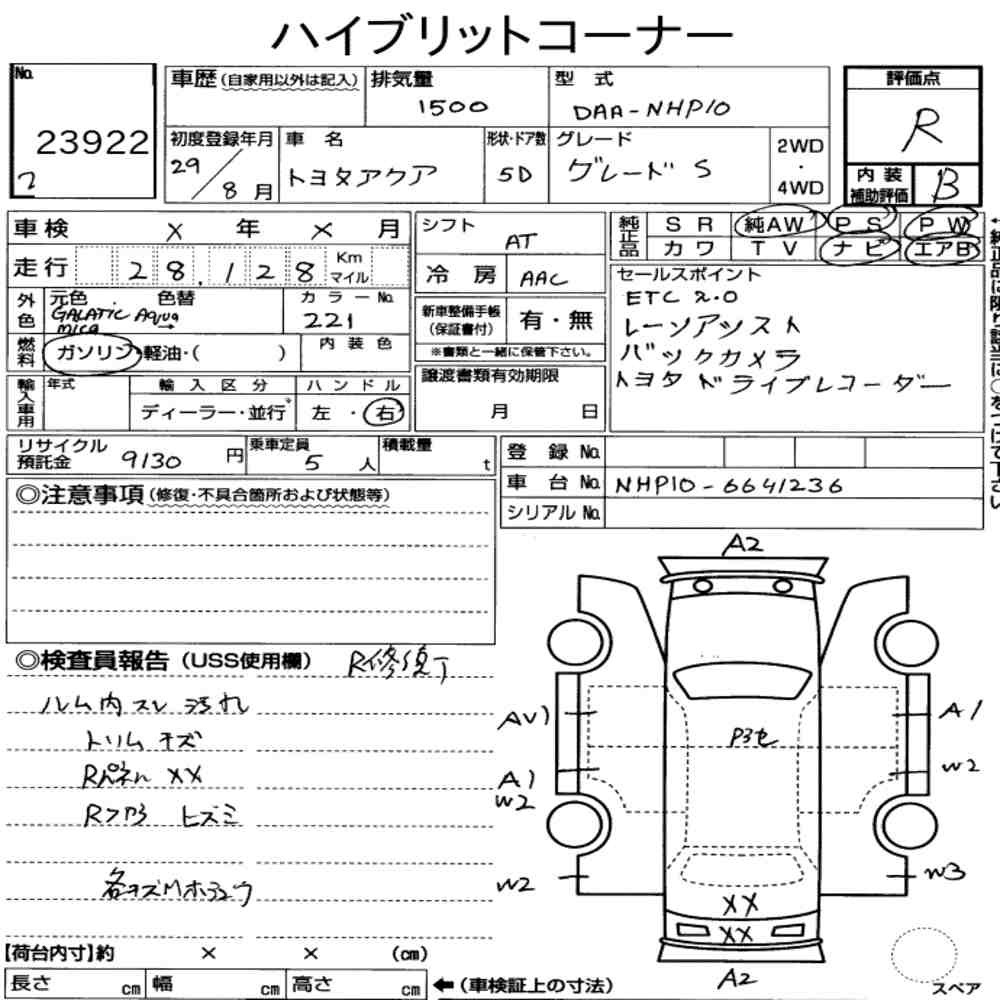 ハイブリットコーナー
No.
23922
2
車歴(自家用以外は記入)
排気量
1500
型 式
DAA-NHP10
評価点
R
初度登録年月
29/8月
車 名
トヨタアクア
形状・ドア数
5D
グレード
グレード S
2WD
・
4WD
内 装
補助評価
B
車検 × 年 × 月
走行 28,128 Km マイル
シフト
AT
冷 房 AAC
純正品
S R 純AW P S P W
カワ T V ナビ エアB
←純正品に限り該当に○をつけて下さい
外色
元色 . 色替
GALATIC Aqua
mica →
カラー No.
221
新車整備手帳
(保証書付)
有・無
※書類と一緒に保管下さい。
セールスポイント
ETC 2.0
レーンアシスト
バックカメラ
トヨタ ドライブレコーダー
燃料
ガソリン・軽油・( )
内 装 色
譲渡書類有効期限
月 日
輸入車用
年式
輸 入 区 分
ディーラー・並行
ハ ン ド ル
左 ・ 右
リサイクル
預託金
9130 円
乗車定員
5 人
積載量
t
登 録 No.
車 台 No. NHP10-6641236
シリアル No.
◎注意事項(修復・不具合箇所および状態等)
A2
◎検査員報告(USS使用欄) R修復丁
ルーム内 スレ 汚れ
トリム キズ
Rパネル ××
Rフロア ヒズミ
AV1
A1
P3セ
A1
W2
W2
W2
W3
XX
XX
A2
【荷台内寸】約 × × (cm)
長さ cm 幅 cm 高さ cm ←(車検証上の寸法)
スペア